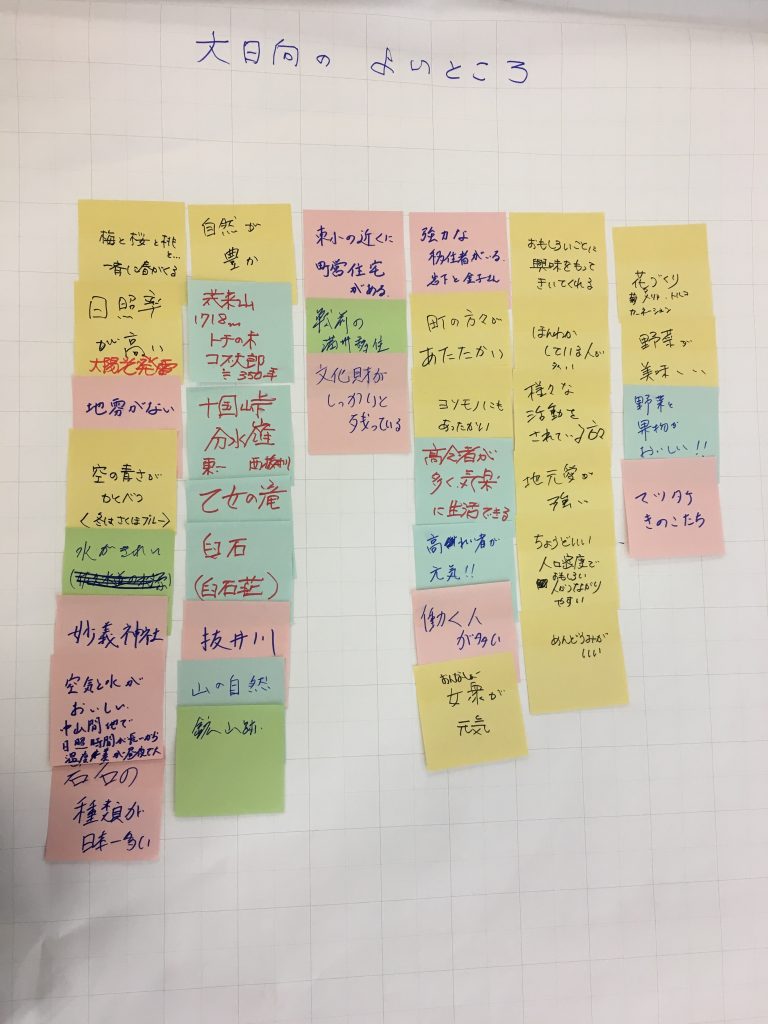 大日向の よいところ
梅と桜と桃
と…
一斉に春がくる
日照率
が高い
太陽光発電
地震がない
空の青さが
かくべつ
(冬はさくほブルー)
水がきれい
妙義神社
空気と水が
おいしい
中山間地で
日照時間が長いから
温度差が昼夜で大
石の
種類が
日本一多い
自然が
豊か
茂来山
1718m
トチの木
コブ太郎
≒350年
十国峠
分水嶺
東― 西
乙女の滝
臼石
(臼石荘)
抜井川
山の自然
鉱山跡
東小の近くに
町営住宅
がある
戦前の
文化財が
しっかりと
残っている
強力な
移住者がいる
岩下と金子さん
町の方々が
あたたかい
ヨソモノにも
あったかい
高令者が
多く、気楽
に生活できる
高齢者が
元気!!
働く人
が多い
おんなしょが
女衆が
元気
おもしろいことに
興味をもって
きいてくれる
ほんわか
している人が
多い
様々な
活動を
されている方々
地元愛が
強い
ちょうどいい
人口密度で
おもしろい
人がつながり
やすい
めんどうみが
いい
花づくり
カーネーション
野菜が
美味しい
野菜と
果物が
おいしい!!
マツタケ
きのこたち